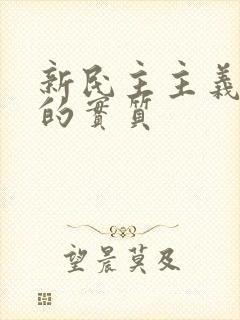 新民主主義
的實質
望晨莫及